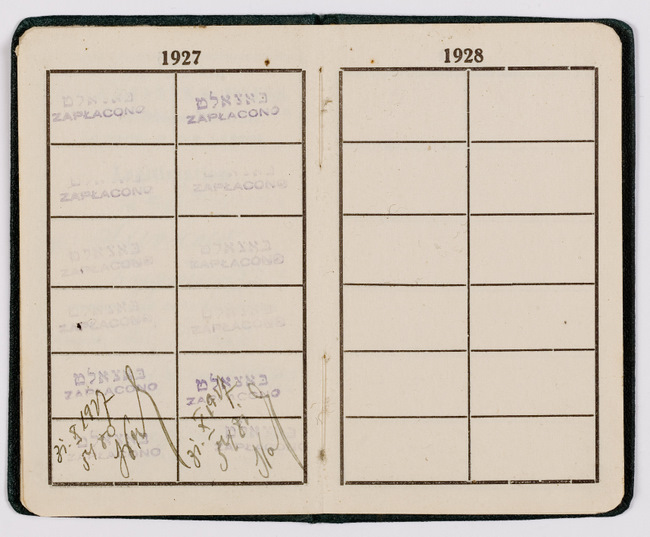 1927
באצאלט באצאלט
ZAPŁACONO ZAPŁACONO
באצאלט באצאלט
ZAPŁACONO ZAPŁACONO
באצאלט באצאלט
ZAPŁACONO ZAPŁACONO
באצאלט באצאלט
ZAPŁACONO ZAPŁACONO
באצאלט באצאלט
ZAPŁACONO ZAPŁACONO
31. X 1927
באצאלט באצאלט
ZAPŁACONO ZAPŁACONO
1928